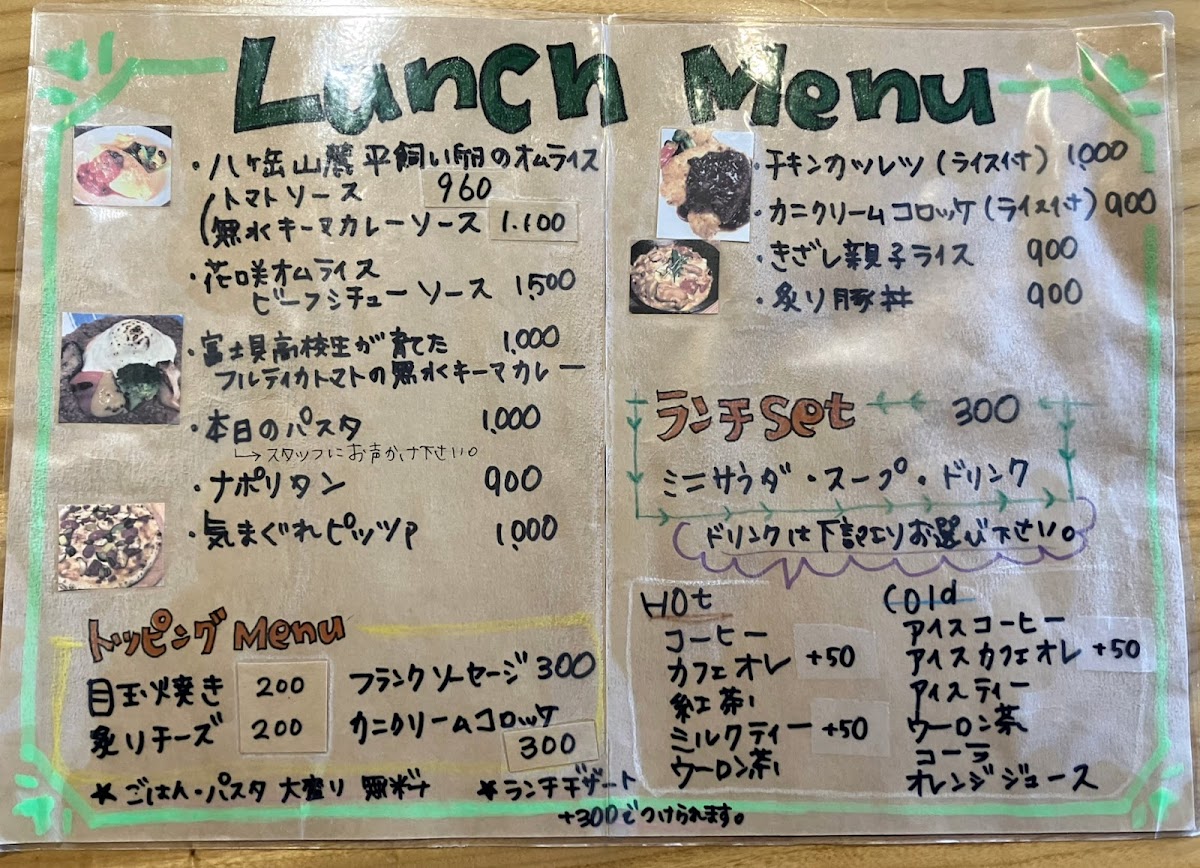 Lunch Menu
・八ヶ岳山麓平飼い卵のオムライス
(トマトソース 960
無水キーマカレーソース 1.100
・花咲オムライス
ビーフシチューソース 1,500
・富士見高校生が育てた 1,000
フルティカトマトの無水キーマカレー
・本日のパスタ 1,000
↳スタッフにお声かけ下さい。
・ナポリタン 900
・気まぐれピッツァ 1,000
トッピング Menu
目玉焼き 200
炙りチーズ 200
フランクソーセージ 300
カニクリームコロッケ
300
★ごはん・パスタ 大盛り 無料
★ランチデザート
+300でつけられます。
・チキンカツレツ(ライス付) 1,000
・カニクリームコロッケ(ライス付) 900
・きざし親子ライス 900
・炙り豚丼 900
ランチ set 300
ミニサラダ・スープ・ドリンク
ドリンクは下記よりお選び下さい。
Hot
コーヒー
カフェオレ +50
紅茶
ミルクティー +50
ウーロン茶
Cold
アイスコーヒー
アイスカフェオレ +50
アイスティー
ウーロン茶
コーラ
オレンジジュース